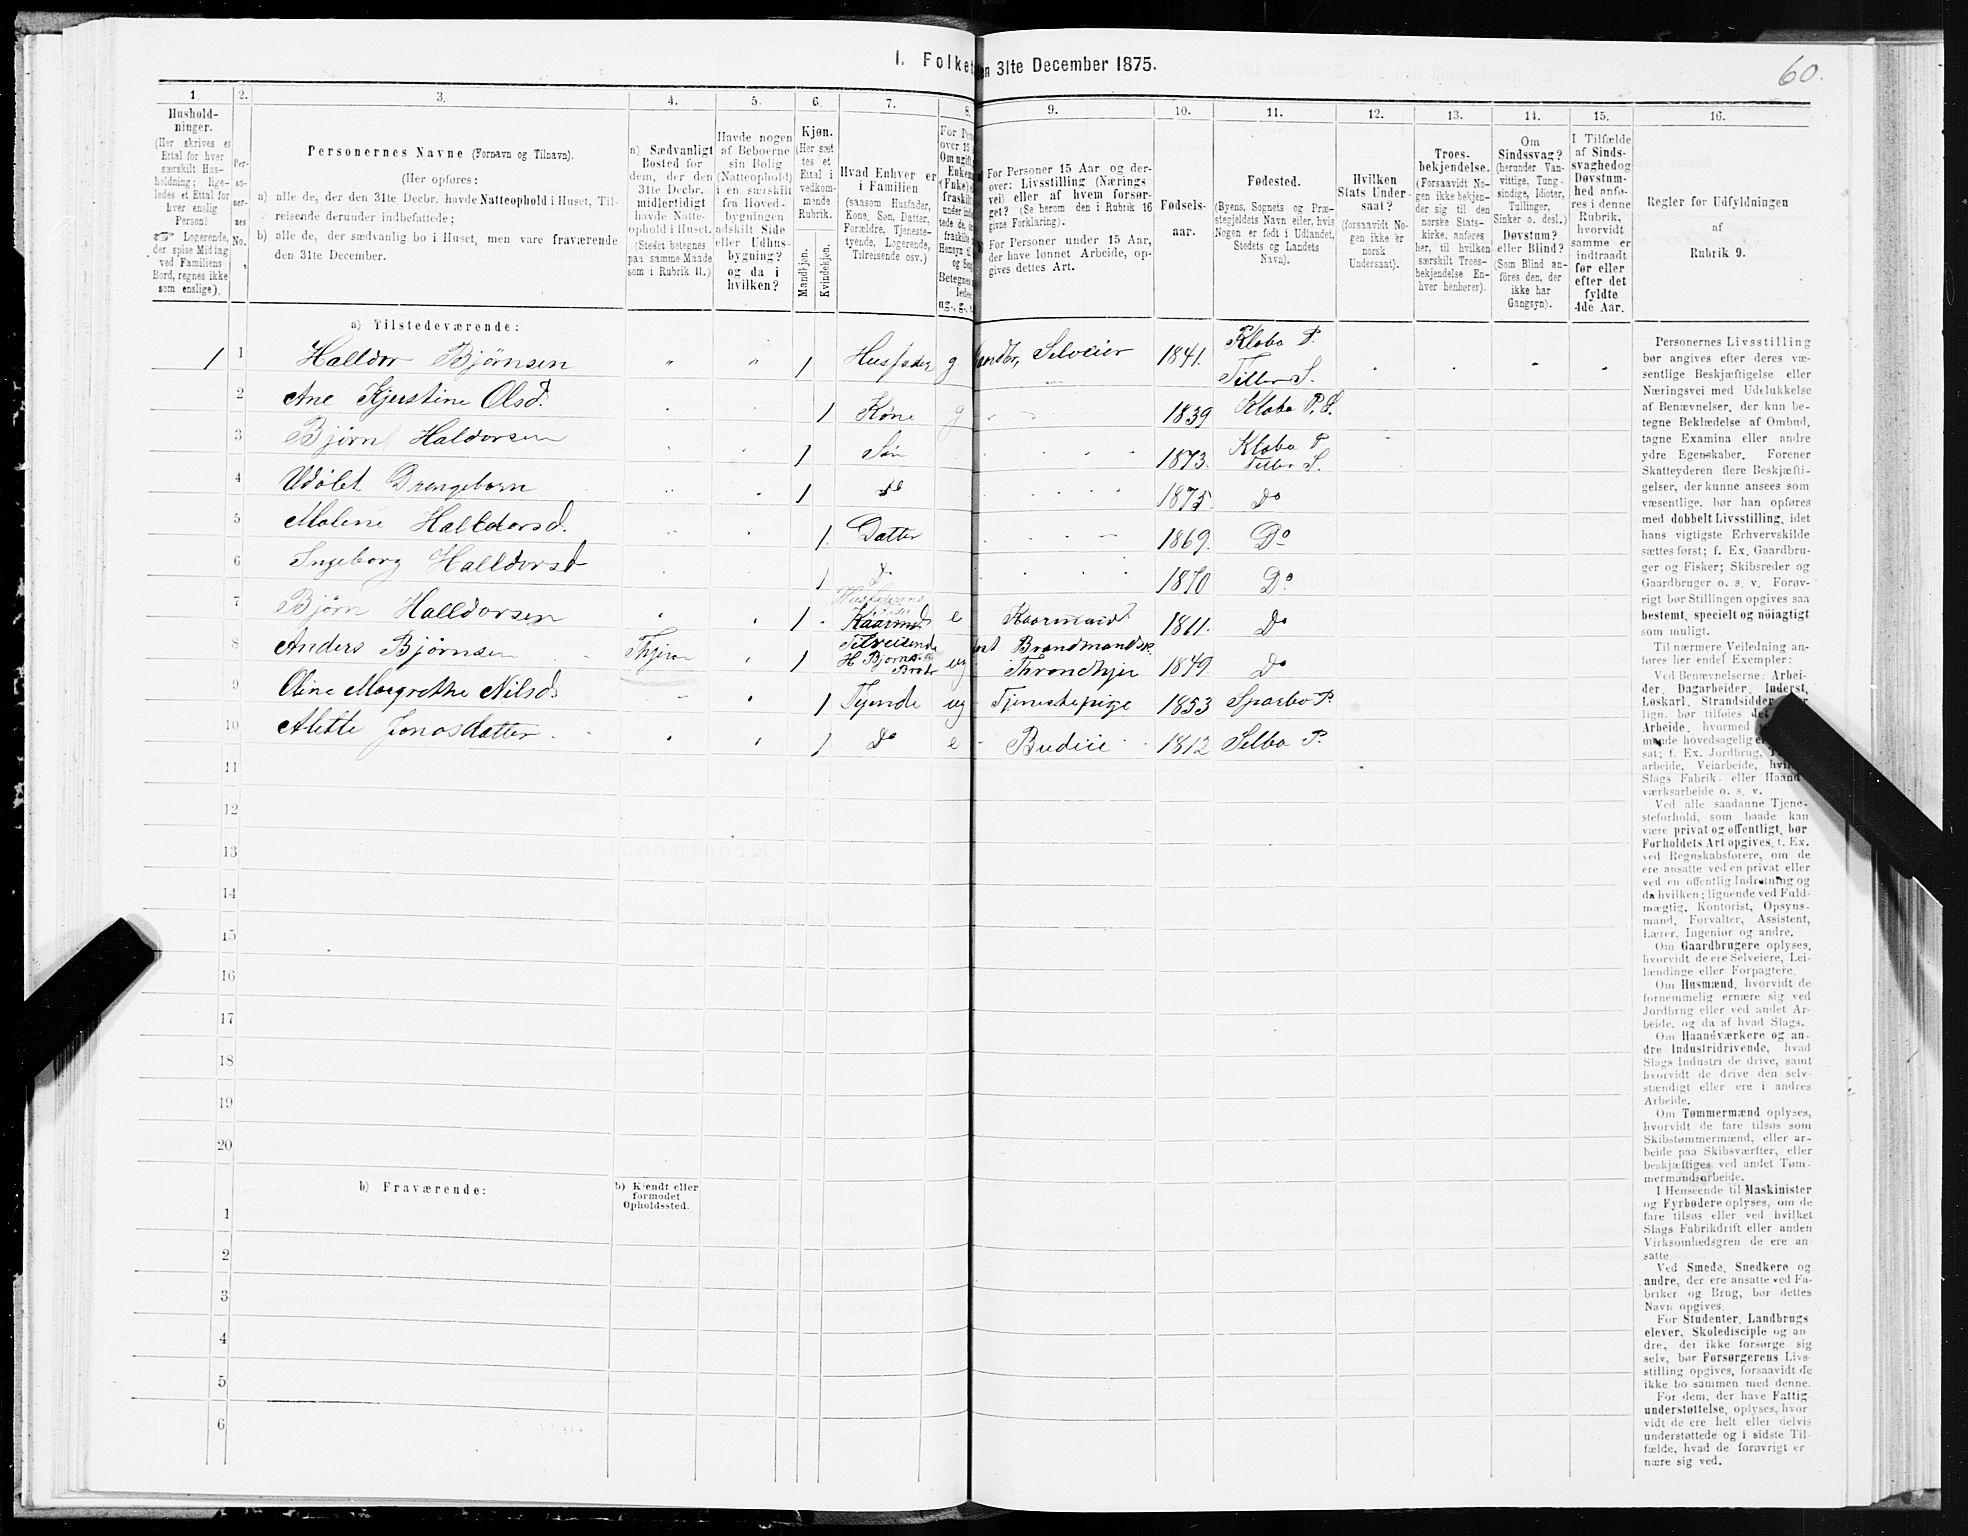 I. Folket
en 31te December 1875.
60.
1.
2.
3.
4.
5.
6.
7.
8.
9.
10.
11.
12.
13.
14.
15.
16.
Hushold-
ninger.
(Her skrives et
Ettal for hver
særskilt Hus-
holdning; lige-
ledes et Ettal for
hver enslig
Person;
☞ Logerende,
der spise Middag
ved Familiens
Bord, regnes ikke
som enslige).
Per-
so-
ner-
nes
No.
Personernes Navne (Fornavn og Tilnavn).
(Her opføres:
a) alle de, der den 31te Decbr. havde Natteophold i Huset, Til-
reisende derunder indbefattede;
b) alle de, der sædvanlig bo i Huset, men vare fraværende
den 31te December.
a) Sædvanligt
Bosted for
dem, der den
31te Decbr.
midlertidigt
havde Natte-
ophold i Huset.
(Stedet betegnes
paa samme Maade
som i Rubrik 11.)
Havde nogen
af Beboerne
sin Bolig
(Natteophold)
i en særskilt
fra Hoved-
bygningen
adskilt Side
eller Udhus-
bygning?
og da i
hvilken?
Kjøn.
(Her sæt
tes et
Ettal i
vedkom-
mende
Rubrik.
Mandkjøn.
Kvindekjøn.
Hvad Enhver er
i Familien
(saasom Husfader,
Kone, Søn, Datter,
Forældre, Tjeneste-
tyende, Logerende,
Tilreisende osv.)
For Personer 15 Aar og der-
over: Livsstilling (Nærings
vei) eller af hvem forsør-
get? (Se herom den i Rubrik 16
givne Forklaring).
For Personer under 15 Aar,
der have lønnet Arbeide, op-
gives dettes Art.
Fødsels-
aar.
Fødested.
(Byens, Sognets og Præ-
stegjeldets Navn eller, hvis
Nogen er født i Udlandet,
Stedets og Landets
Navn).
Hvilken
Stats Under-
saat?
(forsaavidt No-
gen ikke er
norsk
Undersaat).
Troes-
bekjendelse.
(Forsaavidt No-
gen ikke bekjen-
der sig til den
norske Stats-
kirke, anføres
her, til hvilken
særskilt Troes-
bekjendelse En-
hver henhører).
Om
Sindssvag?
(herunder Van-
vittige, Tung-
sindige, Idioter,
Tullinger,
Sinker o. desl.)
Døvstum?
eller Blind?
(Som Blind an-
føres den, der
ikke har
Gangsyn).
I Tilfælde
af Sinds-
svaghed og
Døvstum-
hed anfø-
res i denne
Rubrik,
hvorvidt
samme er
indtraadt
før eller
efter det
fyldte
4de Aar.
Regler for Udfyldningen
af
Rubrik 9.
a) Tilstedeværende:
1 1 Halldor Bjørnsen 1 Husfader g Selveier 1841. Klæbo P. Tiller S.
2 Ane Kjerstine Olsd. 1 Kone g 1839 Klæbo P. S.
3 Bjørn Haldorsen 1 Søn 1873. Klæbo P. Tiller S.
4 Udøbt Drengebarn 1 do 1875. Do
5 Malene Halldorsd. 1. Datter 1869. Do
6 Ingeborg Halldorsd 1 D. 1870 Do.
7 Bjørn Halldorsen 1 Husfaderens Fader Kaarmd e Kaarmand 1811. Do
8 Anders Bjørnsen Thjem 1 Tilreisende H Bjørns. Bror ug Brandmandsk. Throndhjem 1849. Do
9 Oline Margrethe Nilsd. 1 Tjende ug Tjenestepige 1853 Sparbo P.
10 Alette Jonasdatter 1 Do e Budeie 1812 Selbo P.
11
12
13
14
15
16
17
18
19
20
b) Fraværende:
b) Kjendt eller
formodet
Opholdssted.
1
2
3
4
5
6
Personernes Livsstilling
bør angives efter deres væ-
sentlige Beskjæftigelse eller
Næringsvei med Udelukkelse
af Benævnelser, der kun be-
tegne Beklædelse af Ombud,
tagne Examina eller andre
ydre Egenskaber. Forener
Skatteyderen flere Beskjæfti-
gelser, der kunne ansees som
væsentlige, bør han opføres
med dobbelt Livsstilling, idet
hans vigtigste Erhvervskilde
sættes først; f. Ex. Gaardbru-
ger og Fisker; Skibsreder og
Gaardbruger o. s. v. Forøv-
rigt bør Stillingen opgives saa
bestemt, specielt og nøiagtigt
som muligt.
Til nærmere Veiledning an-
føres her endel Exempler:
Ved Benævnelserne: Arbei-
der, Dagarbeider, Inderst,
Løskarl, Strandsidder
lign. bør tilføies det
Arbeide, hvormed
mende hovedsagelig
sat; f. Ex. Jordbrug,
arbeide, Veiarbeide,
Slags Fabrik- eller Haand
værksarbeide o. s. v.
Ved alle saadanne Tjene-
steforhold, som baade kan
være privat og offentligt, bør
Forholdets Art opgives, f. Ex.
ved Regnskabsførere, om de
ere ansatte ved en privat eller
ved en offentlig Indretning og
da hvilken; lignende ved Fuld-
mægtig, Kontorist, Opsyns-
mand, Forvalter, Assistent,
Lærer, Ingeniør og andre.
Om Gaardbrugere oplyses,
hvorvidt de ere Selveiere, Lei-
lændinge eller Forpagtere.
Om Husmænd, hvorvidt de
fornemmelig ernære sig ved
Jordbrug eller ved andet Ar-
beide, og da af hvad Slags.
Om Haandværkere og an-
dre Industridrivende, hvad
Slags Industri de drive, samt
hvorvidt de drive den selv-
stændigt eller ere i andres
Arbeide.
Om Tømmermænd oplyses,
hvorvidt de fare tilsøs som
Skibstømmermænd, eller ar-
beide paa Skibsværfter, eller
beskjæftiges ved andet Tøm-
mermandsarbeide.
I Henseende til Maskinister
og Fyrbødere oplyses, om de
fare tilsøs eller ved hvilket
Slags Fabrikdrift eller anden
Virksomhedsgren de ere an-
satte
Ved Smede, Snedkere og
andre, der ere ansatte ved Fa-
briker og Brug, bør dettes
Navn opgives.
For Studenter, Landbrugs
elever, Skoledisciple og an
dre, der ikke forsørge sig
selv, bør Forsørgerens Livs-
stilling opgives, forsaavidt de
ikke bo sammen med denne.
For dem, der have Fattig-
understøttelse, oplyses, hvor
vidt de ere helt eller delvis
understøttede og i sidste Til-
fælde, hvad de forøvrigt er
nære sig ved.